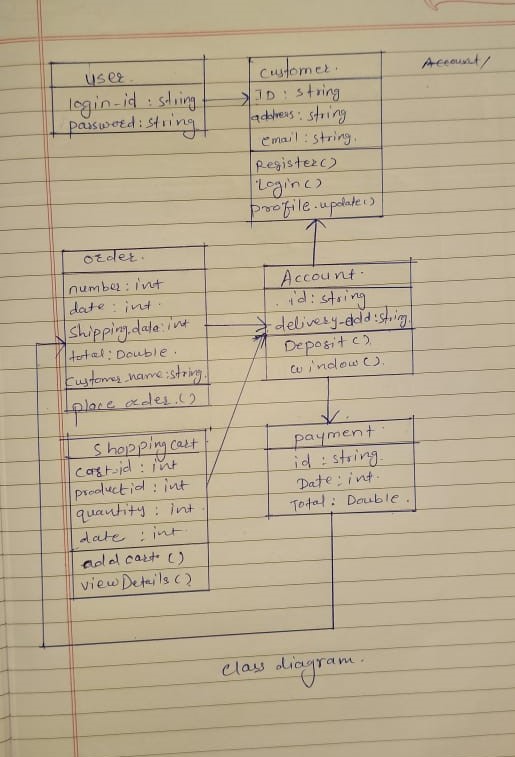 Account/
user.
login-id : string
password : string
Customer.
ID : string
address : string
email : string.
Register()
Login()
profile.update()
order.
number : int
date : int.
Shipping.data : int
total : Double.
Customer.name : string.
place order.()
Account.
id : string
delivery-add : string.
Deposit()
window().
Shopping cart
cart-id : int
product id : int
quantity : int.
date : int
add cart ()
viewDetails()
payment.
id : string.
Date : int.
Total : Double.
class diagram.